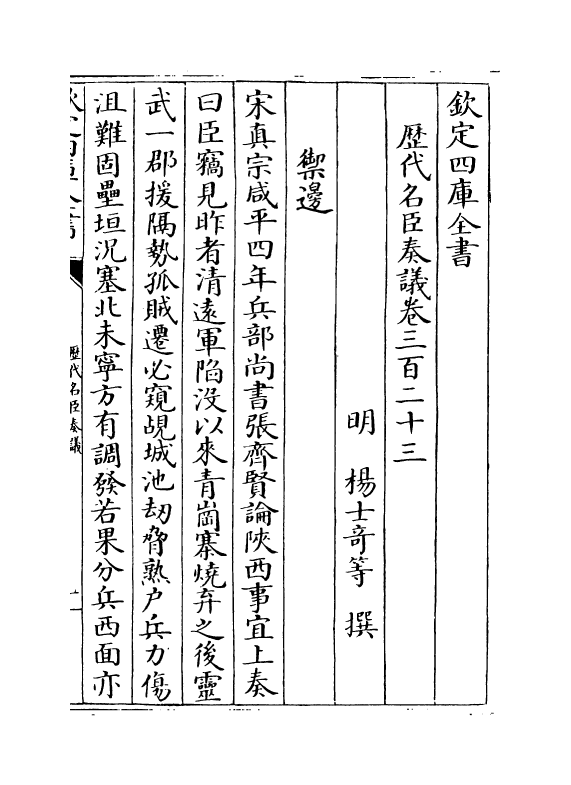 欽定四庫全書
歷代名臣奏議卷三百二十三
明 楊士奇等 撰
禦邊
宋真宗咸平四年兵部尚書張齊賢論陝西事宜上奏
曰臣竊見昨者清遠軍陷没以來青崗寨燒弃之後靈
武一郡援隔勢孤賊遷必窺覘城池刼脅熟户兵力傷
沮難固壘垣況塞北未寧方有調發若果分兵西面亦
歷代名臣奏議